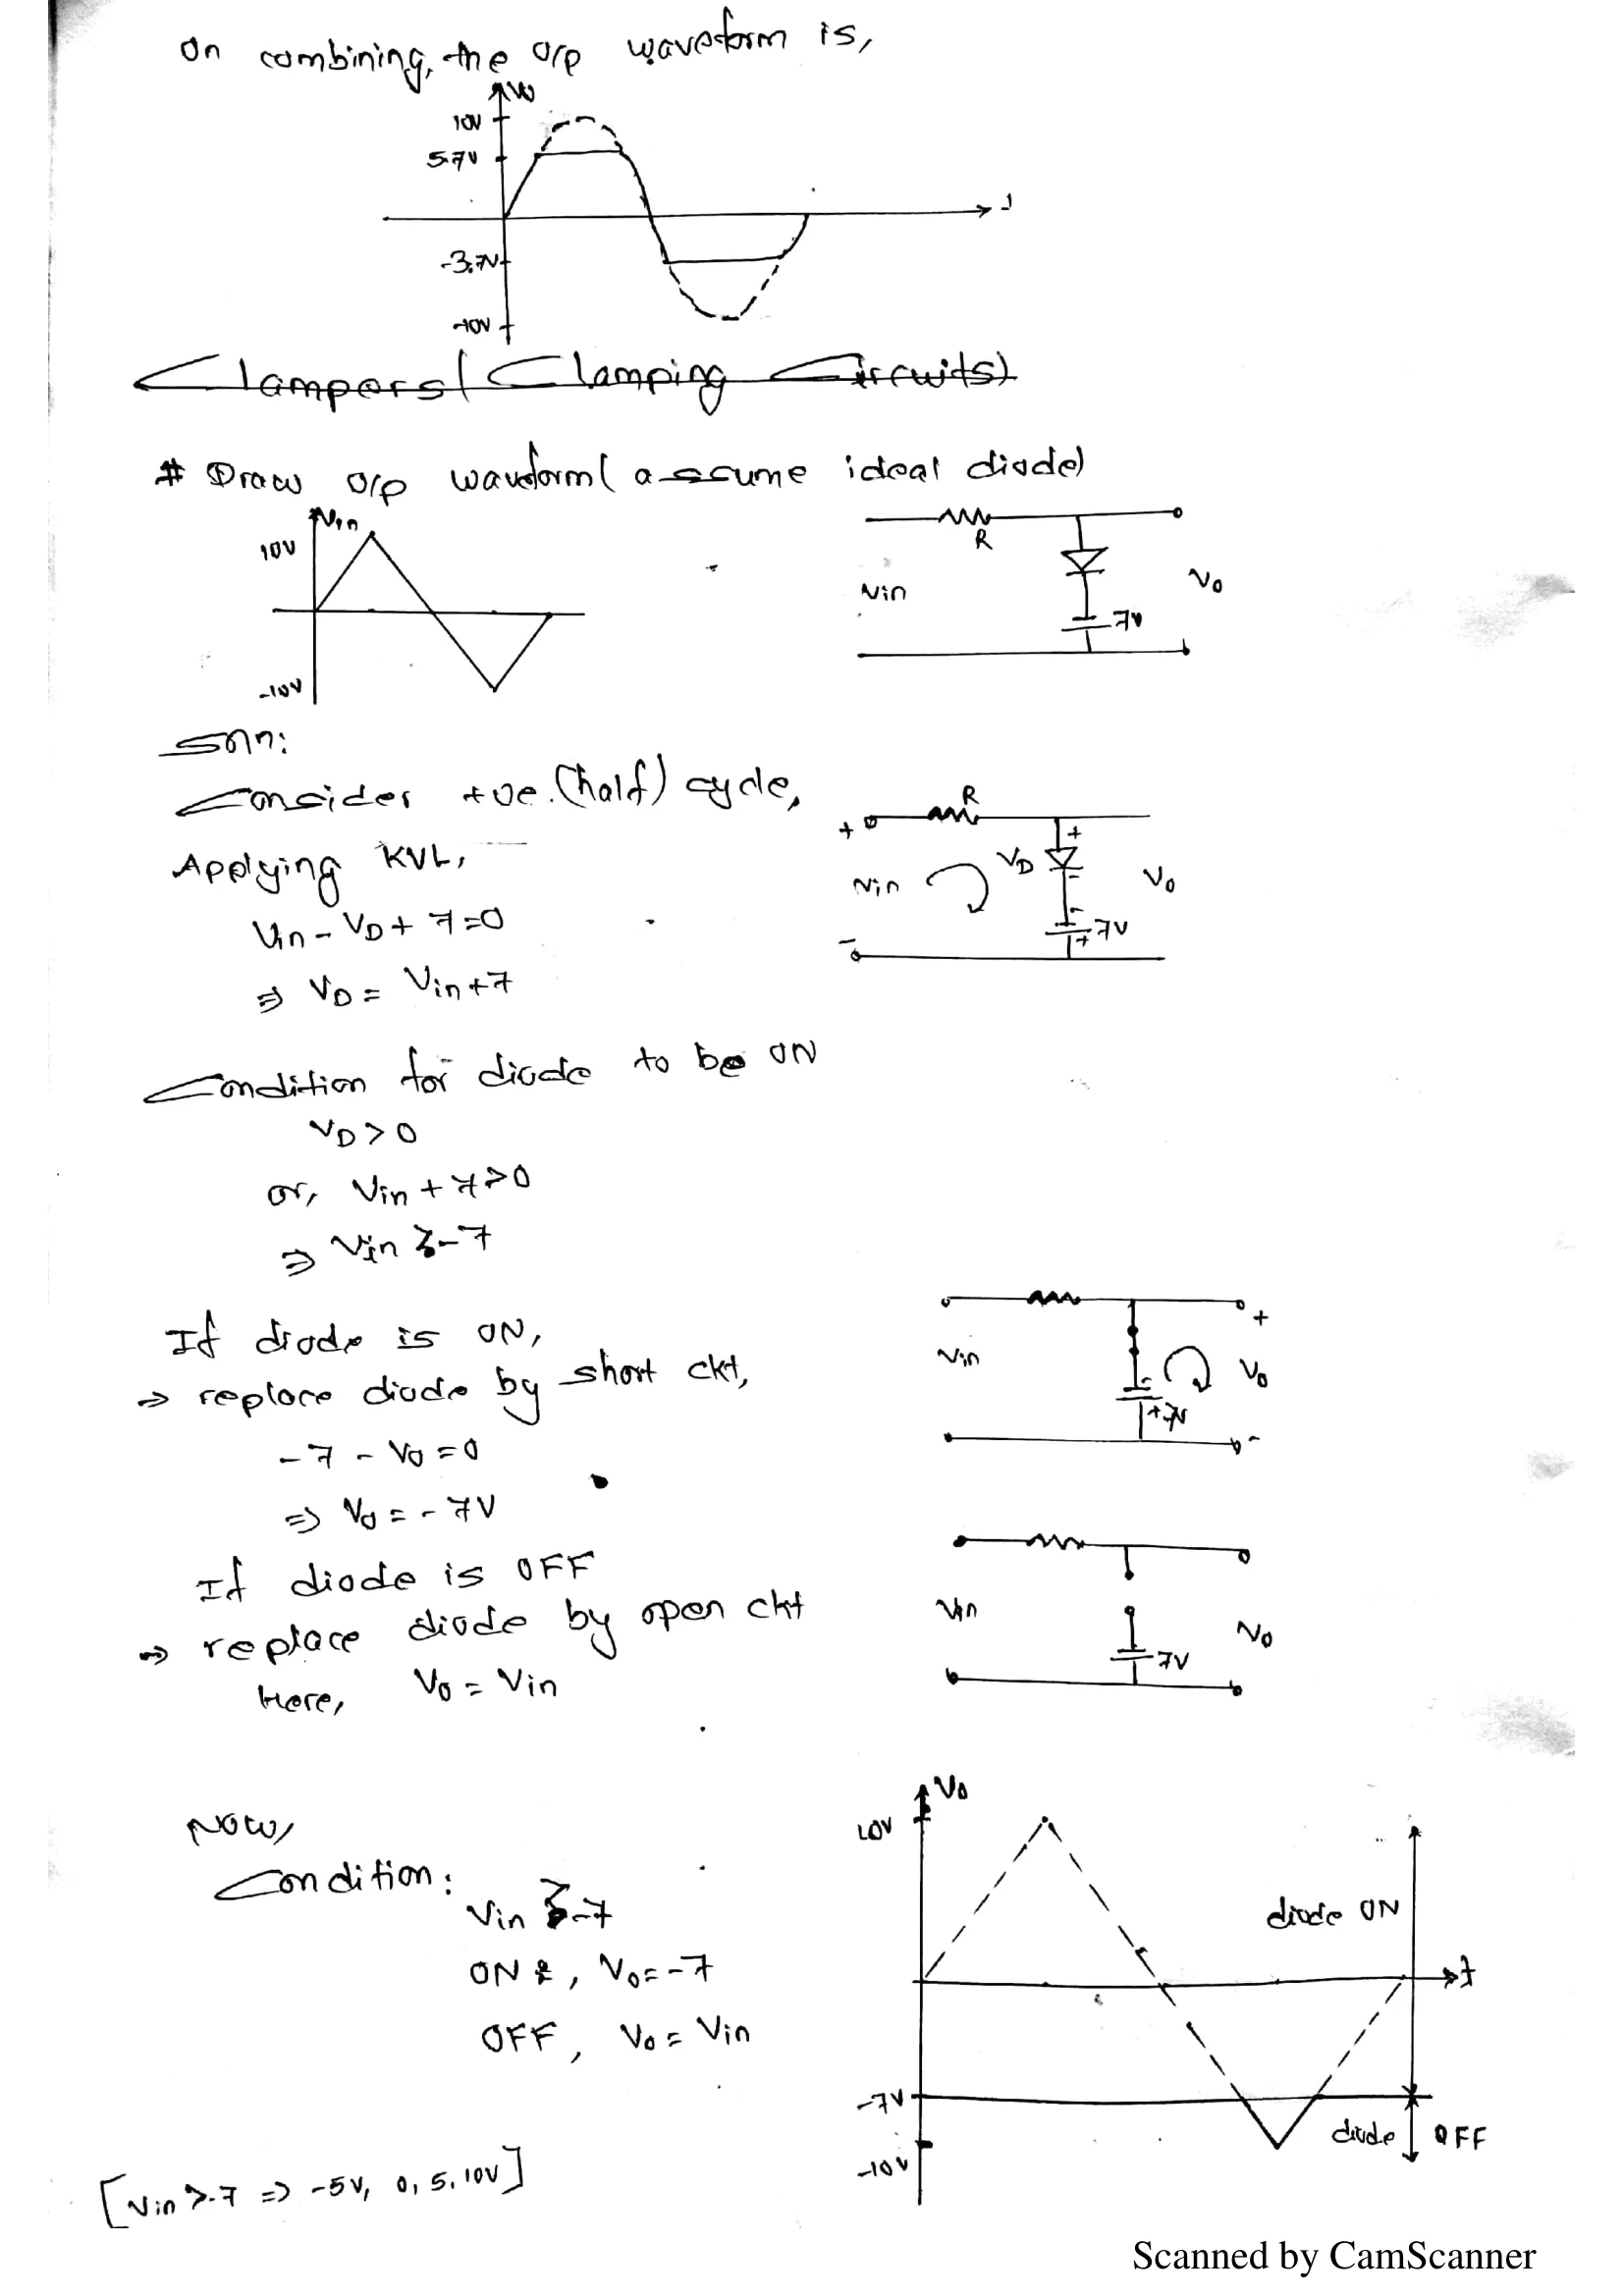 On combining, the o/p waveform is,
Vo
10V
5.7V
t
-3.7V
-10V
Clampers (Clamping Circuits)
# Draw o/p waveform (assume ideal diode)
Vin
10V
-10V
R
Vin
7V
Vo
Soln:
Consider +ve (half) cycle,
Applying KVL,
Vin - VD + 7 = 0
⇒ VD = Vin + 7
R
+
+
VD
-
Vin
Vo
-
7V
+
-
Condition for diode to be ON
VD > 0
or, Vin + 7 > 0
⇒ Vin > -7
If diode is ON,
⇒ replace diode by short ckt,
-7 - Vo = 0
⇒ Vo = -7V
+
Vin
-
Vo
+7V
-
If diode is OFF
⇒ replace diode by open ckt
Here, Vo = Vin
Vin
Vo
7V
Now,
Condition:
Vin > -7
ON, Vo = -7
OFF, Vo = Vin
[Vin > -7 ⇒ -5V, 0, 5, 10V]
Vo
10V
diode ON
t
-7V
diode OFF
-10V
Scanned by CamScanner